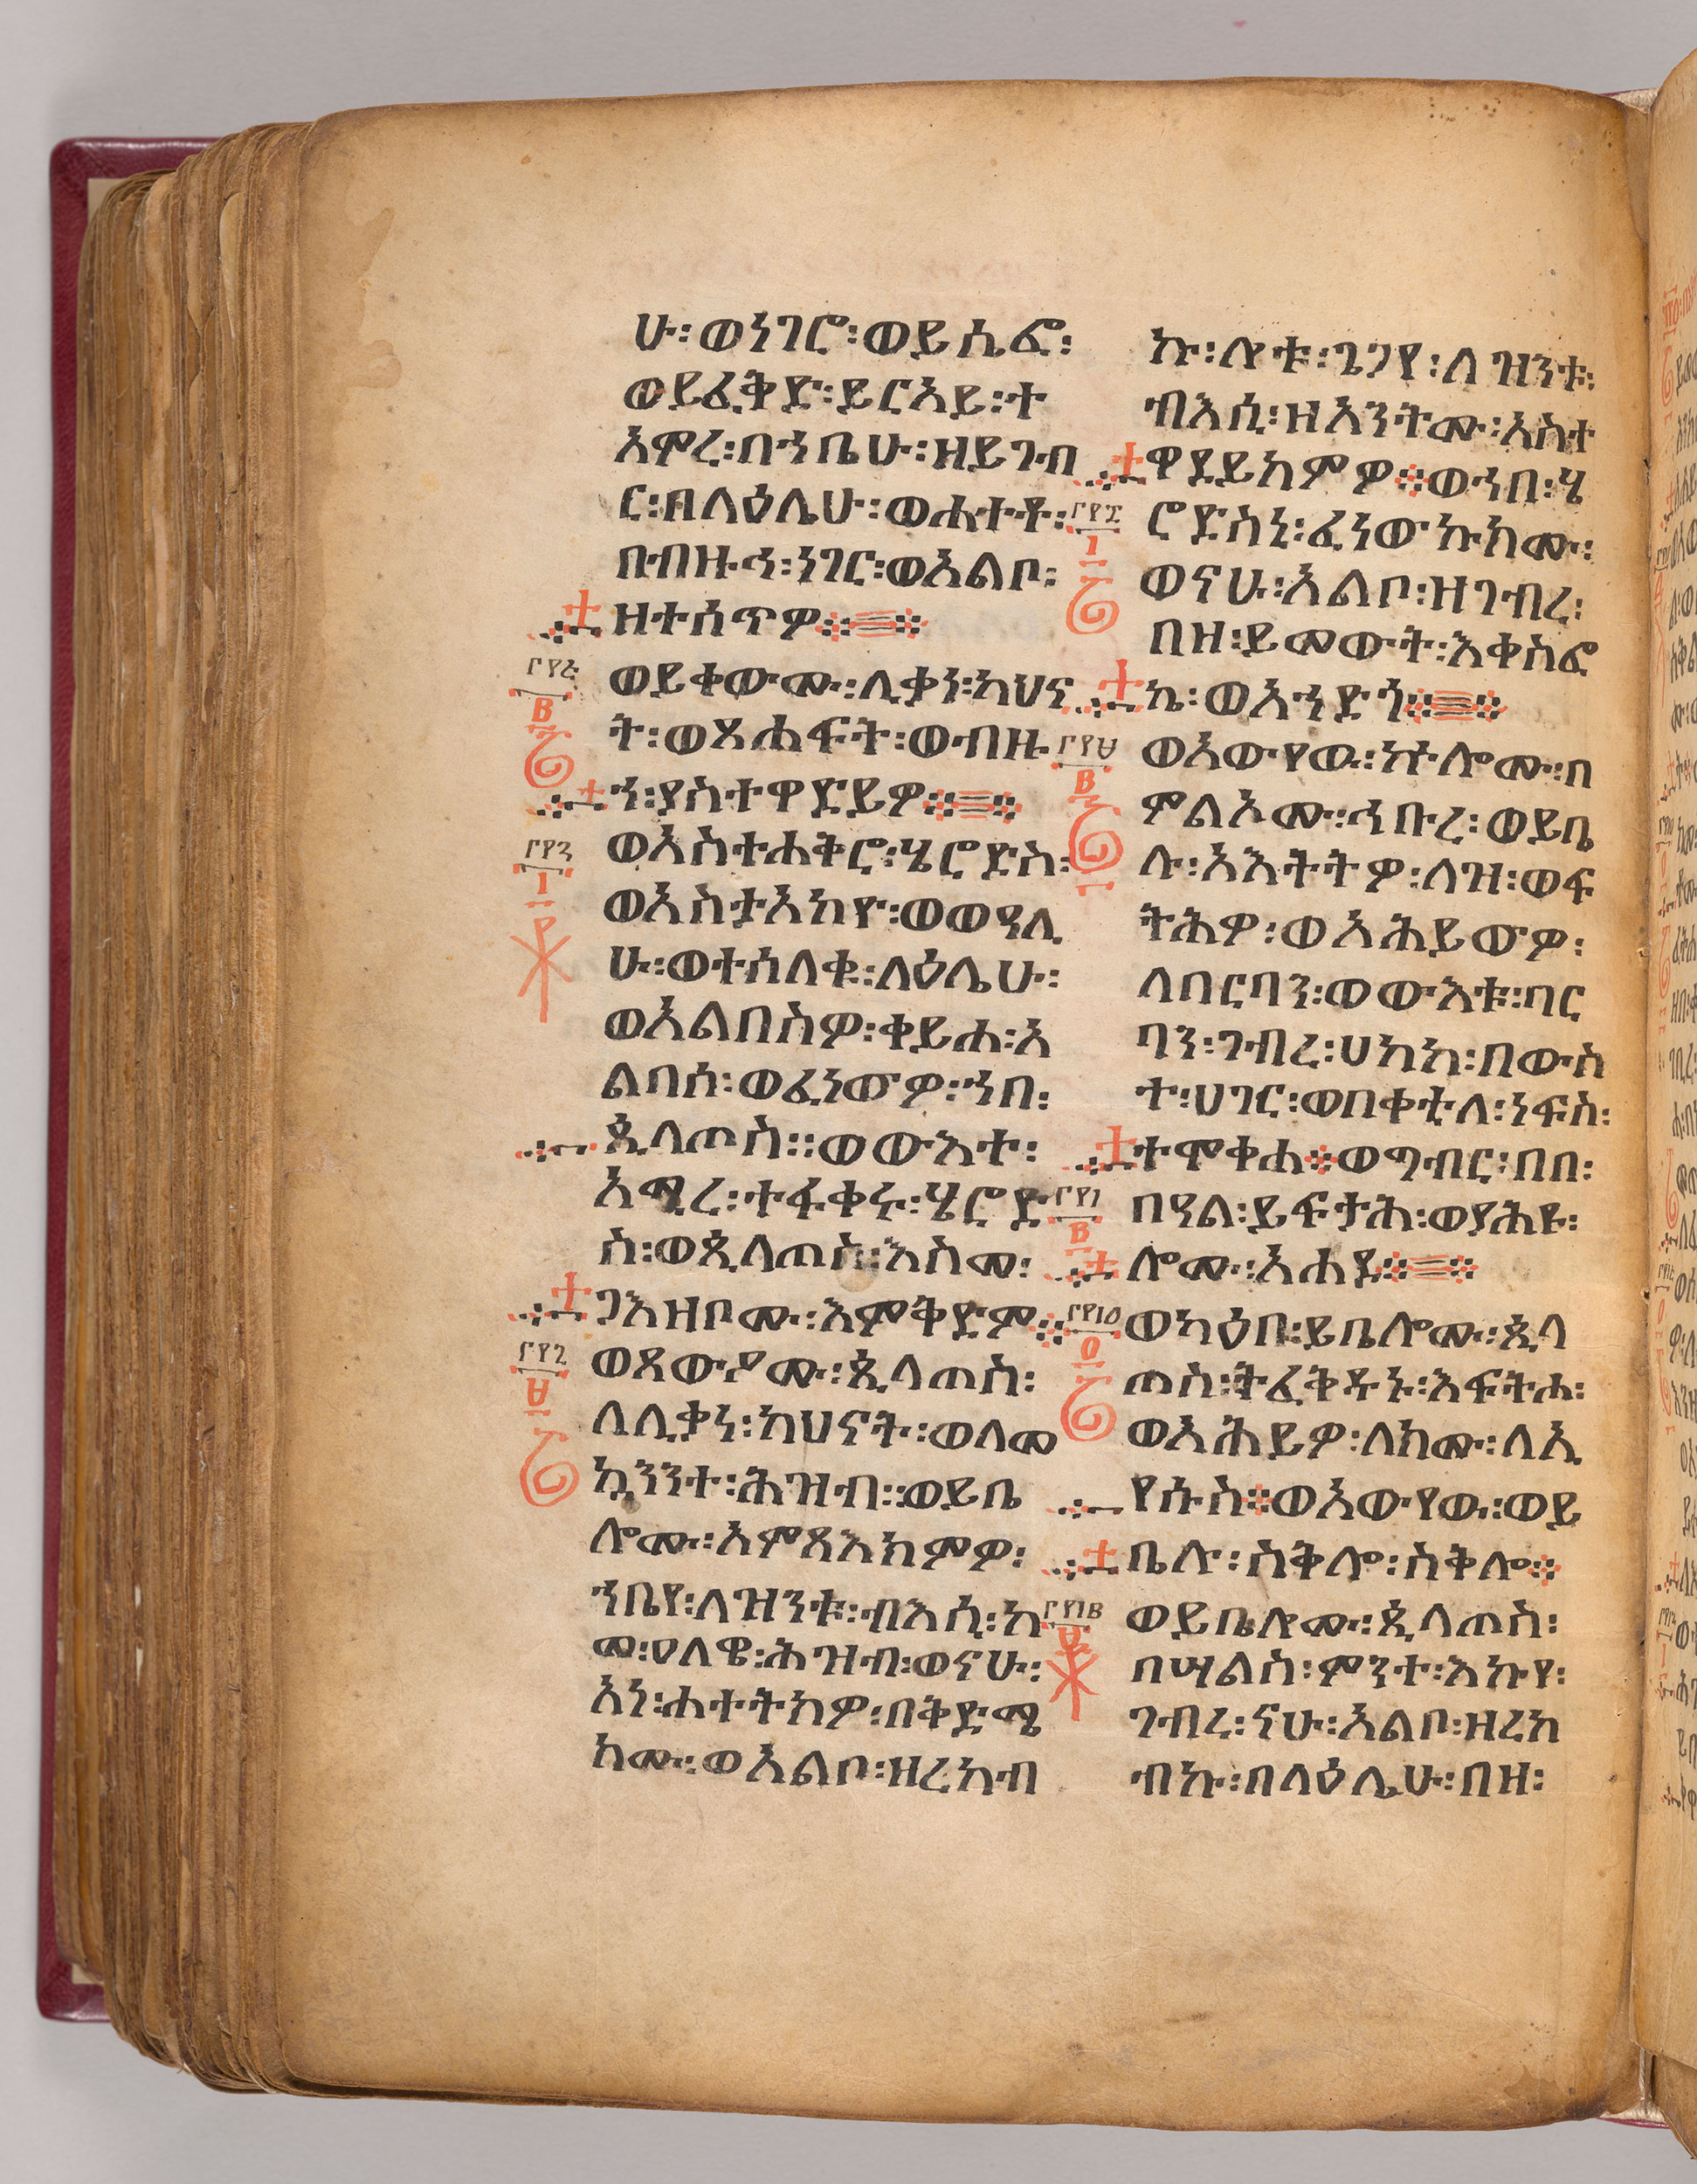 ሁ፡ወነገሮ፡ወይሴፎ፡
ወይፈቅድ፡ይርአይ፡ተ
አምረ፡በኀቤሁ፡ዘይገብ
ር፡በላዕሌሁ፡ወሐተቶ፡
በብዙኅ፡ነገር፡ወአልቦ፡
ዘተሰጥዎ፨
ወይቀውሙ፡ሊቃነ፡ካህና
ት፡ወጸሐፍት፡ወብዙ
ኀ፡ያስተዋድይዎ፨
ወአስተሐቅሮ፡ሄሮድስ፡
ወአስታአከዮ፡ወወዓሊ
ሁ፡ወተሰለቁ፡ላዕሌሁ፡
ወአልበስዎ፡ቀይሐ፡አ
ልባሰ፡ወፈነውዎ፡ኀበ፡
ጲላጦስ፡፡ወውእተ፡
አሚረ፡ተፋቀሩ፡ሄሮድ
ስ፡ወጲላጦስ፡እስመ፡
ጋእዝቦሙ፡እምቅድም፨
ወጸውዖሙ፡ጲላጦስ፡
ለሊቃነ፡ካህናት፡ወለመ
ኳንንተ፡ሕዝብ፡፡ወይቤ
ሎሙ፡አምጻእክምዎ፡
ኀቤየ፡ለዝንቱ፡ብእሲ፡ከ
መ፡ዐላዌ፡ሕዝብ፡ወናሁ፡
አነ፡ሐተትክዎ፡በቅድሜ
ክሙ፡ወአልቦ፡ዘረከብ
ኩ፡ሎቱ፡ጌጋየ፡ለዝንቱ፡
ብእሲ፡ዘአንትሙ፡አስተ
ዋደይክምዎ፨ወኀበ፡ሄ
ሮድስኒ፡ፈነውኩክሙ፡
ወናሁ፡አልቦ፡ዘገብረ፡
በዘ፡ይመውት፡እቀስፎ
ኬ፡ወአኀድጎ፨
ወአውየዉ፡ኵሎሙ፡በ
ምልኦሙ፡ኅቡረ፡ወይቤ
ሉ፡አእትትዎ፡ለዝ፡ወፍ
ትሕዎ፡ወአሕይውዎ፡
ለበርባን፡ወውእቱ፡ባር
ባን፡ገብረ፡ሀከከ፡በውስ
ተ፡ሀገር፡ወበቀቲለ፡ነፍስ፡
ተሞቀሐ፨ወግብር፡በበ፡
በዓል፡ይፍታሕ፡ወያሕዩ፡
ሎሙ፡አሐደ፨
ወካዕበ፡ይቤሎሙ፡ጲላ
ጦስ፡ትፈቅዱኑ፡እፍትሐ፡
ወአሕይዎ፡ለክሙ፡ለኢ
የሱስ፨ወአውየዉ፡ወይ
ቤሉ፡ስቅሎ፡ስቅሎ፨
ወይቤሎሙ፡ጲላጦስ፡
በሣልስ፡ምንተ፡እኩየ፡
ገብረ፡ናሁ፡አልቦ፡ዘረከ
ብኩ፡በላዕሌሁ፡በዘ፡